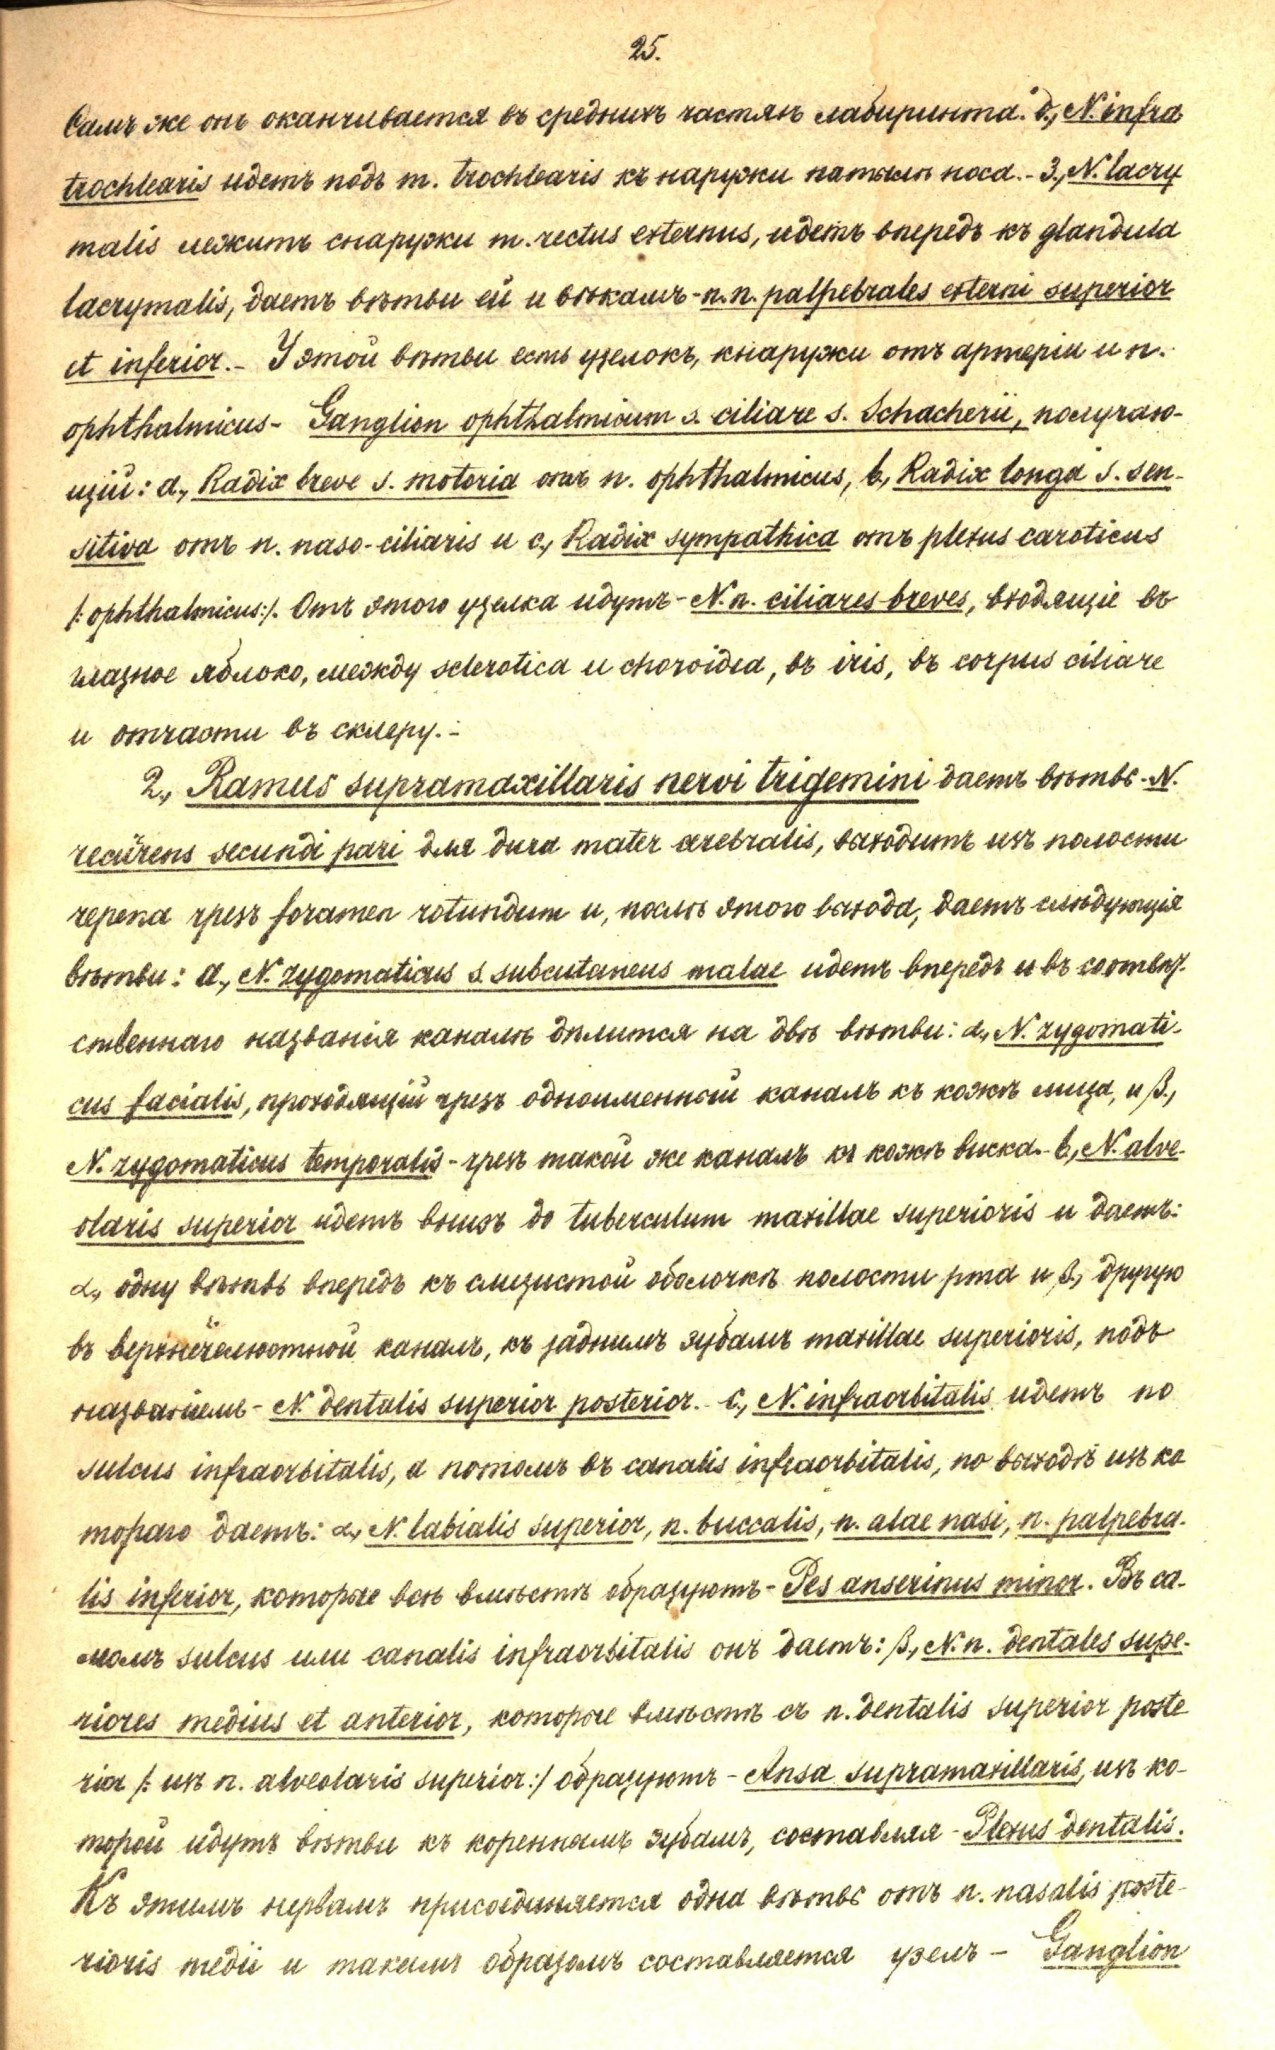 25.
Самъ же онъ оканчивается въ среднихъ частяхъ лабиринта. δ., N. infra
trochlearis идетъ подъ m. trochlearis къ наружи на тылъ носа. - 3., N. lacry
malis лежитъ снаружи m. rectus externus, идетъ впередъ къ glandula
lacrymalis, даетъ вѣтви ей и вѣкамъ - n. n. palpebrales externi superior
et inferior. - У этой вѣтви есть узелокъ, кнаружи отъ артеріи и n.
ophthalmicus - Ganglion ophthalmicum s. ciliare s. Schacherii, получаю-
щій: a., Radix breve s. motoria отъ n. ophthalmicus, b., Radix longa s. sen-
sitiva отъ n. naso-ciliaris и c., Radix sympathica отъ plexus caroticus
/: ophthalmicus:/. Отъ этого узелка идутъ - N. n. ciliares breves, входящіе въ
глазное яблоко, между sclerotica и choroidea, въ iris, въ corpus ciliare
и отчасти въ склеру. -
2., Ramus supramaxillaris nervi trigemini даетъ вѣтвь - N.
recurens secundi pari для dura mater cerebralis, выходитъ изъ полости
черепа чрезъ foramen rotundum и, послѣ этого выхода, даетъ слѣдующія
вѣтви: a., N. zygomaticus s. subcutaneus malae идетъ впередъ и въ соотвѣт-
ственнаго названія каналѣ дѣлится на двѣ вѣтви: α., N. zygomati-
cus facialis, проходящій чрезъ одноименный каналъ къ кожѣ лица, и β.,
N. zygomaticus temporalis - чрезъ такой же каналъ къ кожѣ виска. - b., N. alve-
olaris superior идетъ внизъ до tuberculum maxillae superioris и даетъ:
α., одну вѣтвь впередъ къ слизистой оболочкѣ полости рта и β., другую
въ верхнечелюстной каналъ, къ заднимъ зубамъ maxillae superioris, подъ
названіемъ - N. dentalis superior posterior. - c., N. infraorbitalis идетъ по
sulcus infraorbitalis, а потомъ въ canalis infraorbitalis, по выходѣ изъ ко
тораго даетъ: α., N. labialis superior, n. buccalis, n. alae nasi, n. palpebra-
lis inferior, которые всѣ вмѣстѣ образуютъ - Pes anserinus minor. Въ са-
момъ sulcus или canalis infraorbitalis онъ даетъ: β., N. n. dentales supe-
riores medius et anterior, которые вмѣстѣ съ n. dentalis superior poste
rior /: изъ n. alveolaris superior:/ образуютъ - Ansa supramaxillaris, изъ ко-
торой идутъ вѣтви къ кореннымъ зубамъ, составляя - Plexus dentalis.
Къ этимъ нервамъ присоединяется одна вѣтвь отъ n. nasalis poste-
rioris medii и такимъ образомъ составляется узелъ - Ganglion